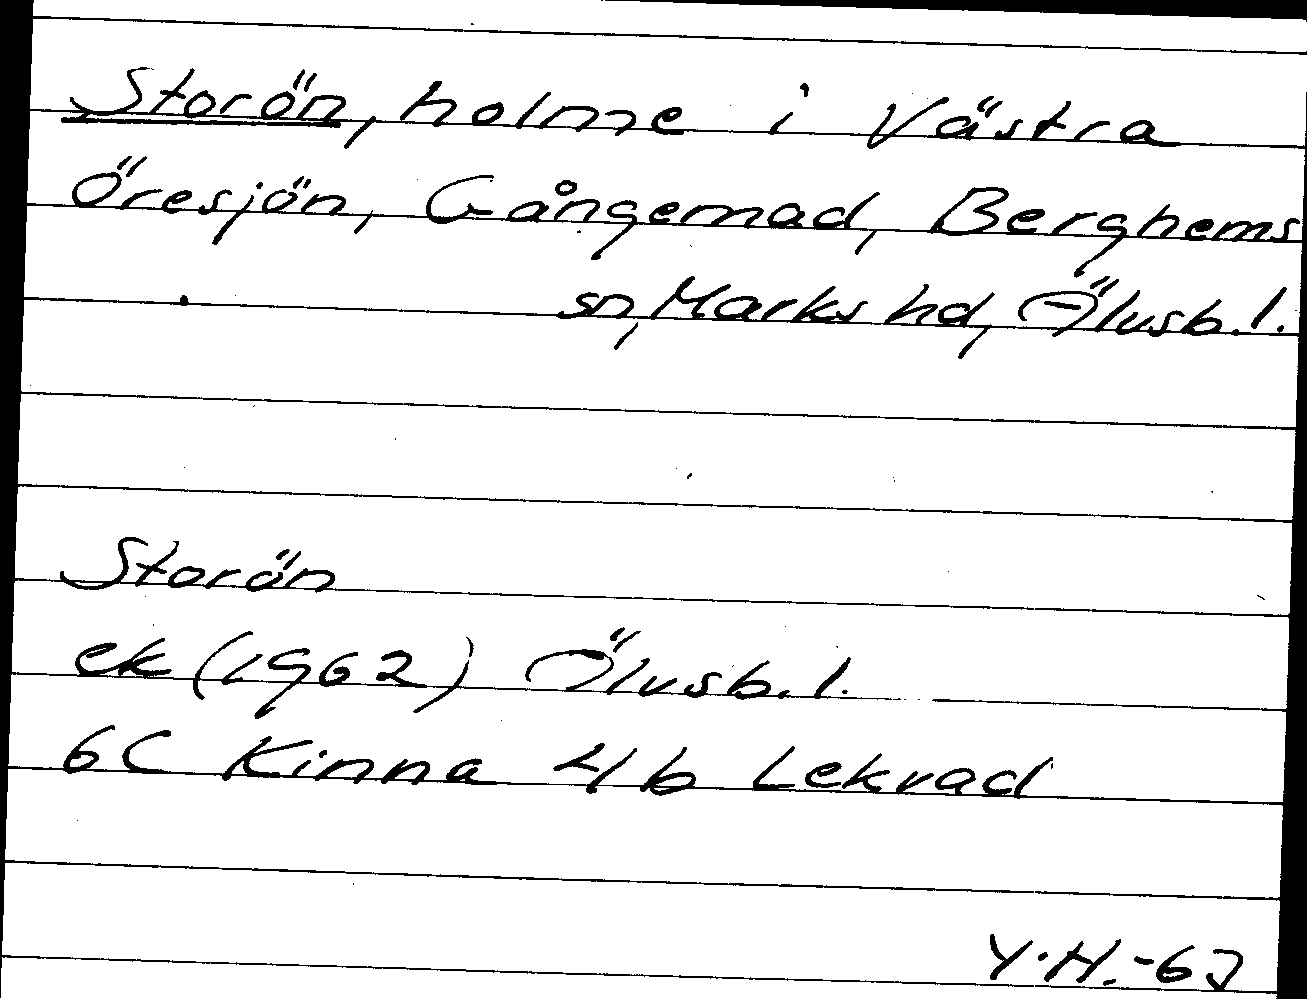 Storön, holme i Västra
Öresjön, Gångemad, Berghems
sn, Marks hd, Älvsb. l.
Storön
ek (1962) Älvsb. l.
6C Kinna 4b Lekvad
Y.H.-63